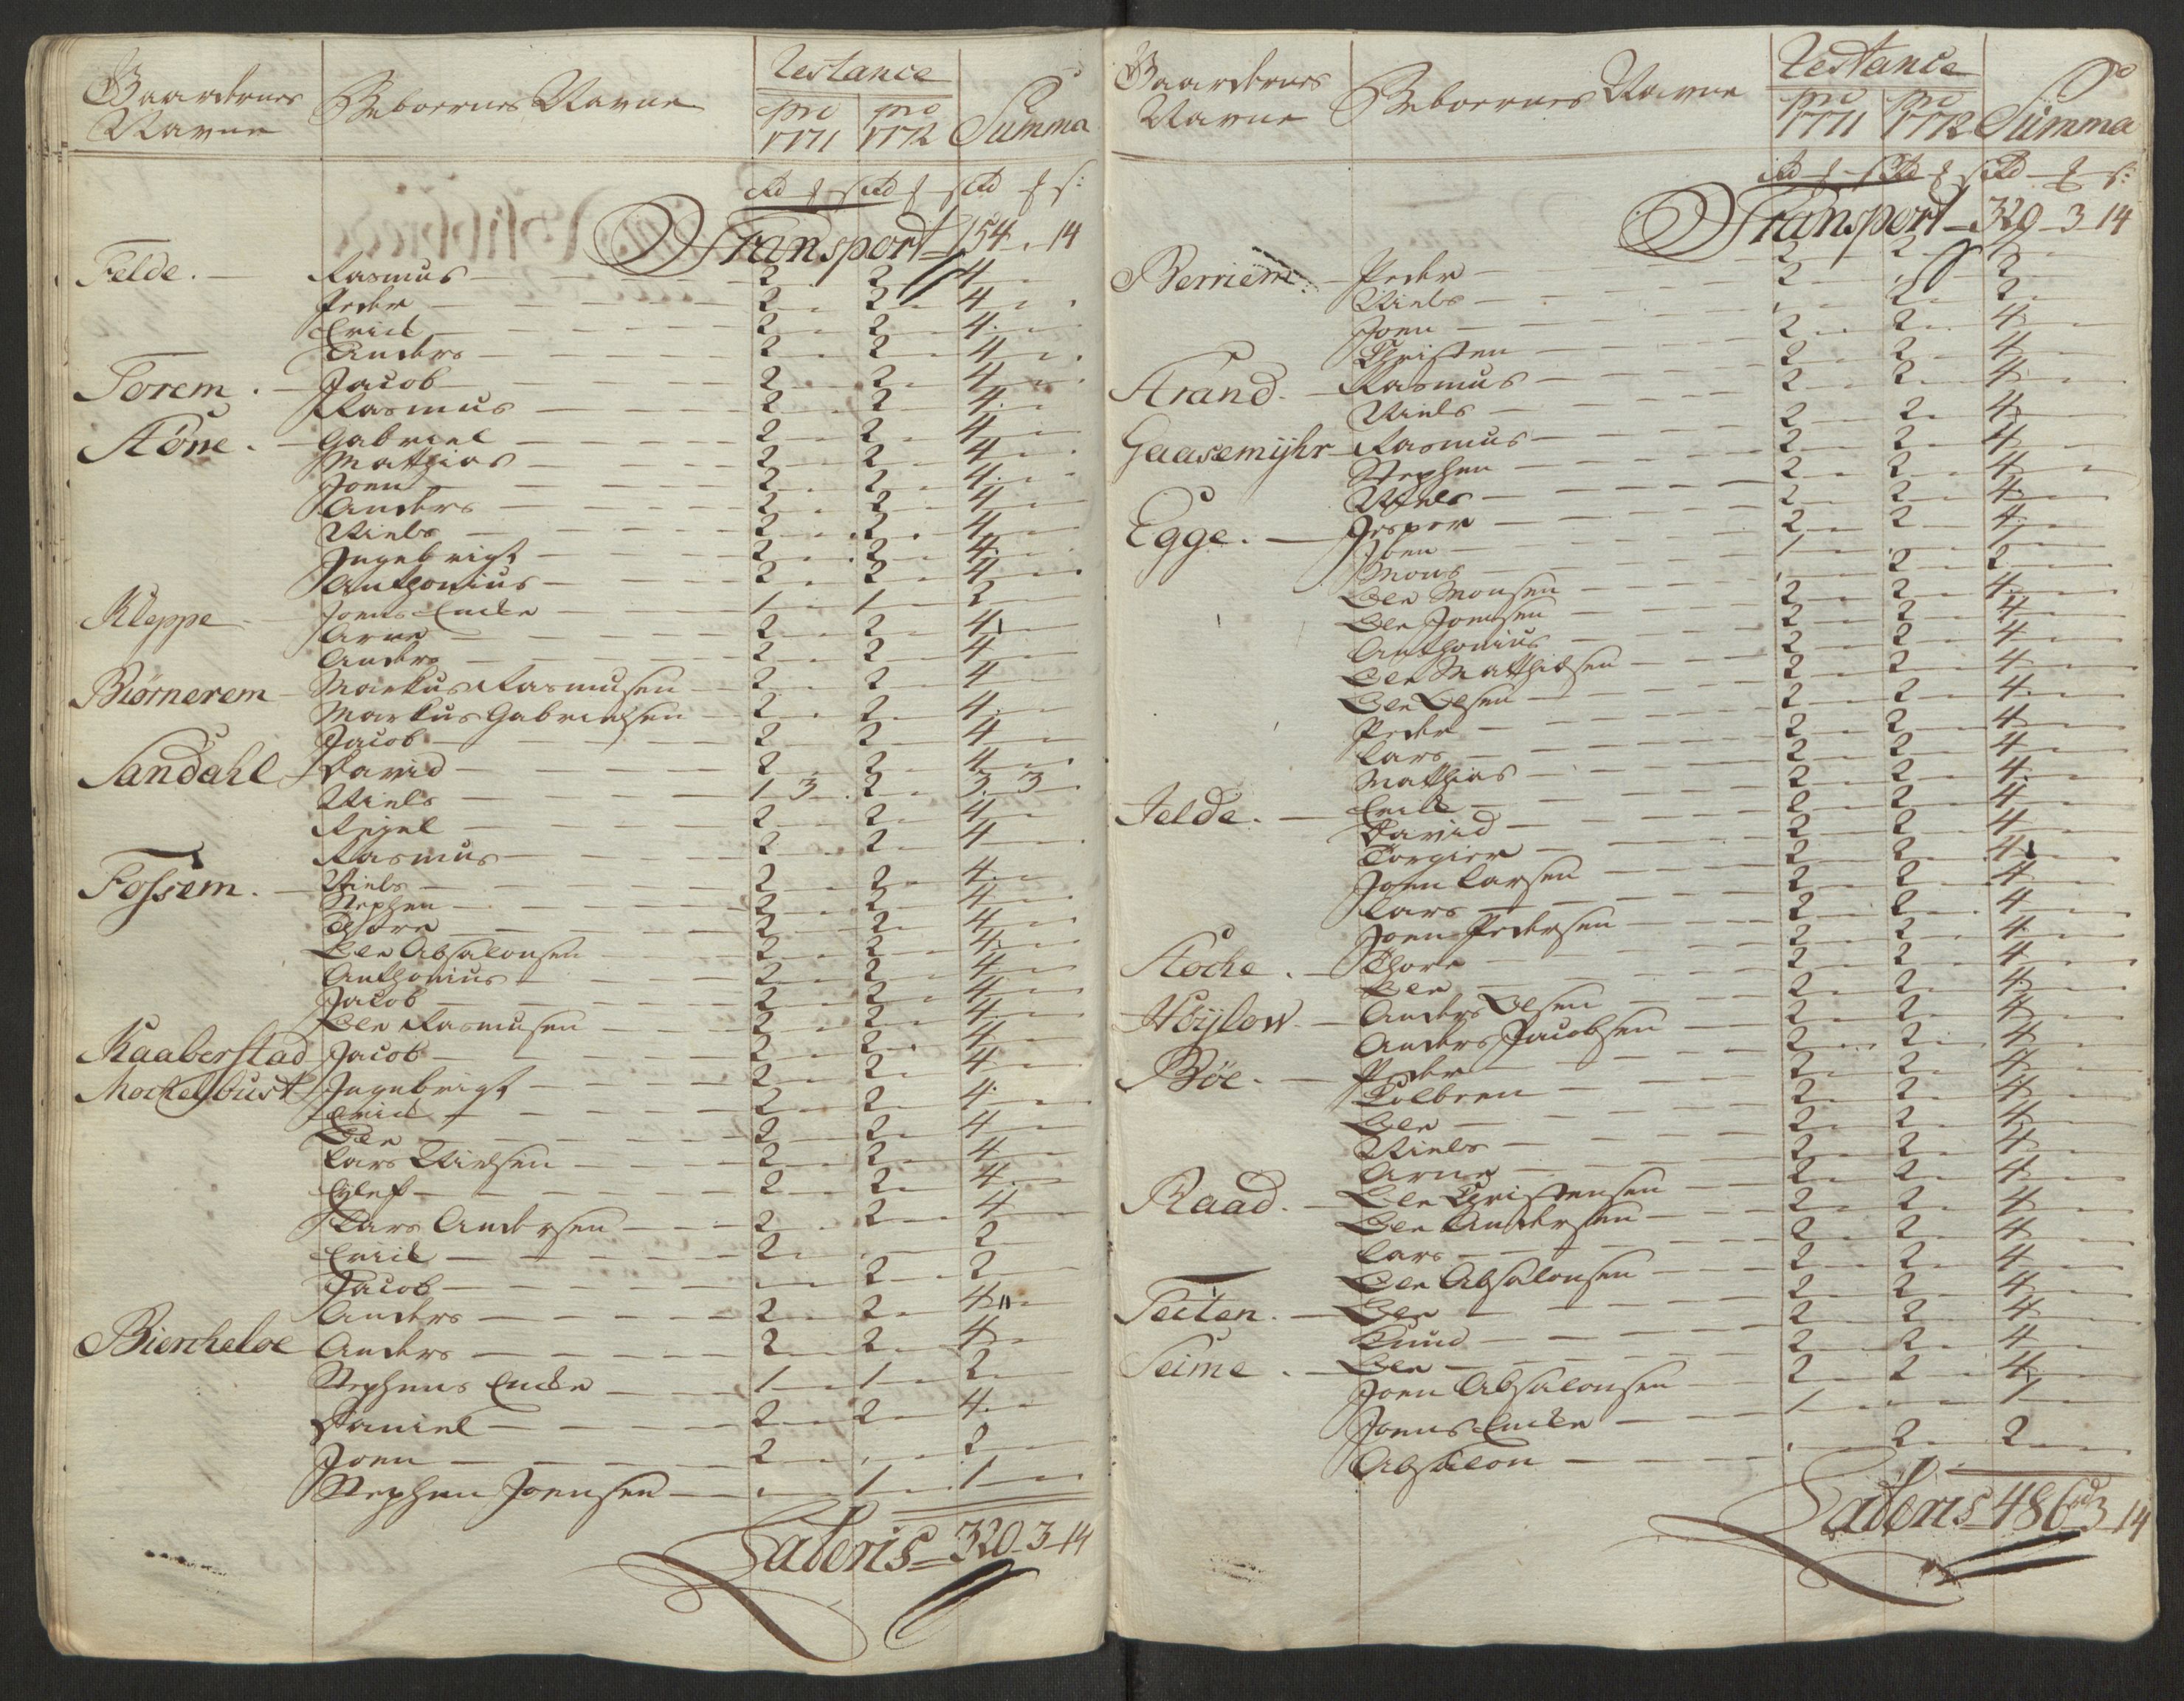 Gaardernes Navne Beboernes Navne Restance Summa
pro 1771 pro 1772
rd ƒ s rd ƒ s rd ƒ s:
Transport 154 . 14
Felde. Rasmus 2 2 4
Peder 2 2 4
Erich 2 2 4
Anders 2 2 4
Torem. Jacob 2 2 4
Rasmus 2 2 4
Støne. Gabriel 2 2 4
Matthias 2 2 4
Joen 2 2 4
Anders 2 2 4
Niels 2 2 4
Ingebrigt 2 2 4
Anthonius 2 2 4
Kleppe Joens Encke 1 1 2
Arne 2 2 4
Anders 2 2 4
Biørnerem Markus Rasmusen 2 2 4
Markus Gabrielsen 2 2 4
Jacob 2 2 4
Sandahl David 2 2 4
Niels 1 3 2 3 3
2 2 4
Rasmus 2 2 4
Fossem. Niels 2 2 4
Stephen 2 2 4
2 2 4
Ole Absalonsen 2 2 4
Anthonius 2 2 4
Jacob 2 2 4
Ole Rasmusen 2 2 4
Kaaberstad Jacob 2 2 4
Mochelbust Ingebrigt 2 2 4
Erich 2 2 4
Ole 2 2 4
Lars Nielsen 2 2 4
Eylef 2 2 4
Lars Andersen 2 2 4
Erich 2 2
Jacob 2 2
Anders 2 2 4
Biercheloe Anders 2 2 4
Stephens Encke 1 1 2
Daniel 2 2 4
Joen 2 2
Stephen Joensen 1 1
Lateris 320 3 14
Gaardernes Navne Beboernes Navne Restance Summa
pro 1771 pro 1772
rd ƒ s rd ƒ s rd ƒ s:
Transport 320 3 14
Berriem. Peder 2 2 4
Niels 2 2
Joen 2 2
Christen 2 2 4
Strand. Rasmus 2 2 4
Niels 2 2 4
Gaasemyhr Rasmus 2 2 4
Stephen 2 2 4
Niels 2 2 4
Egge. Jesper 2 2 4
Iben 2 2 4
Mons 1
Ole Monsen 2 2
Ole Joensen 2 2 4
Anthonius 2 2 4
Ole Matthiasen 2 2 4
Ole Olsen 2 2 4
Peder 2 2 4
Lars 2 2 4
Matthias 2 2 4
Jelde. Erich 2 2 4
David 2 2 4
Torgier 2 2 4
Joen Larsen 2 2 4
Lars 2 2 4
Joen Pedersen 2 2 4
Stoche. Thore 2 2 4
Ole 2 2 4
Høylow Anders Olsen 2 2 4
Anders Jacobsen 2 2 4
Bøe. Peder 2 2 4
Colbeen 2 2 4
Ole 2 2 4
Niels 2 2 4
Arne 2 2 4
Raad. Ole Christensen 2 2 4
Ole Andersen 2 2 4
Lars 2 2 4
Ole Absalonsen 2 2 4
Teiten. Ole 2 2 4
Knud 2 2 4
Seime. Ole 2 2 4
Joen Absalonsen 2 2 4
Joens Encke 1 1
Absalon 2 2
Lateris 486 rd 3 14